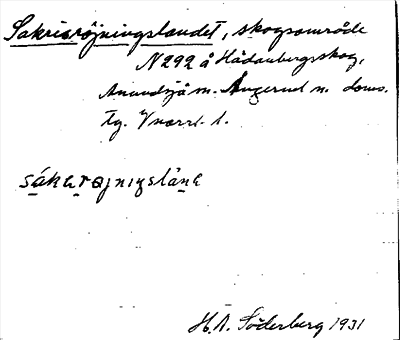 Sakrisröjningslandet, skogsområde
N 292 å Hädanbergsskog,
Anundsjö m. Ångerml. n. doms.
tg. Vnorrl. l.
säkerøjnigslänẹ
H. A. Söderberg 1931